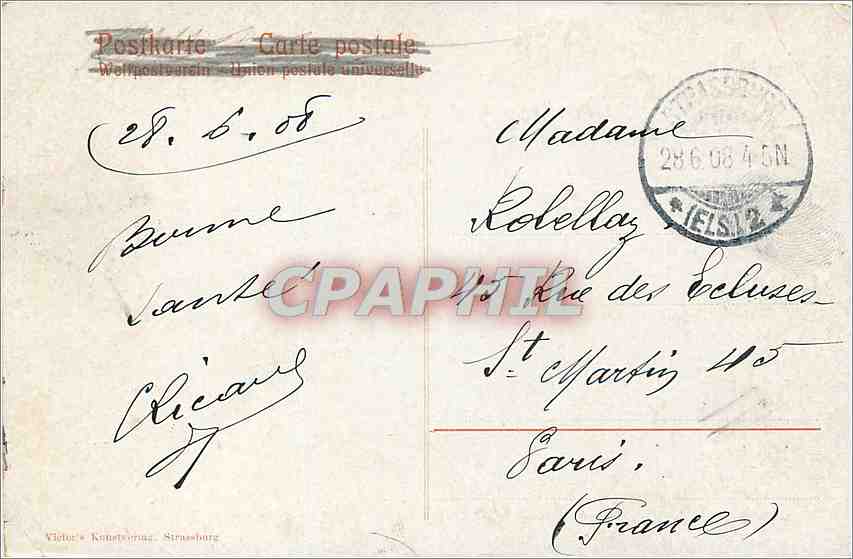 Postkarte Carte postale
Weltpostverein - Union postale universelle
28. 6. 08
Bonne
santé
Ricard
Madame
Robellaz
45 Rue des Ecluses-
St Martin 45
Paris.
(France)
STRASSBURG
28.6.08 4-5N
* (ELS.) 2 *
CPAPHIL
Victor's Kunstverlag, Strassburg